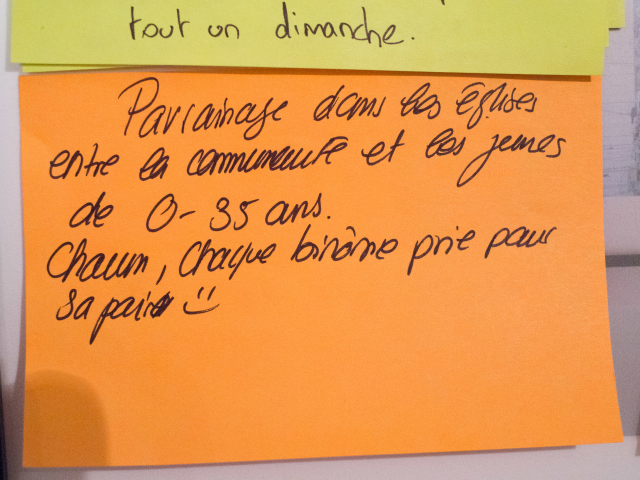 tout un dimanche.
Parrainage dans les Églises
entre la communauté et les jeunes
de 0-35 ans.
Chacun, Chaque binôme prie pour
sa paire :)